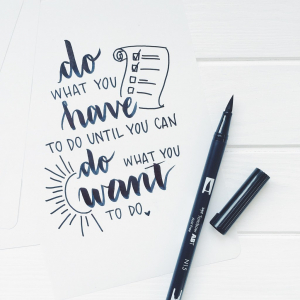 do
WHAT YOU
have
TO DO UNTIL YOU CAN
do WHAT YOU
want
TO DO.
ABT
N15